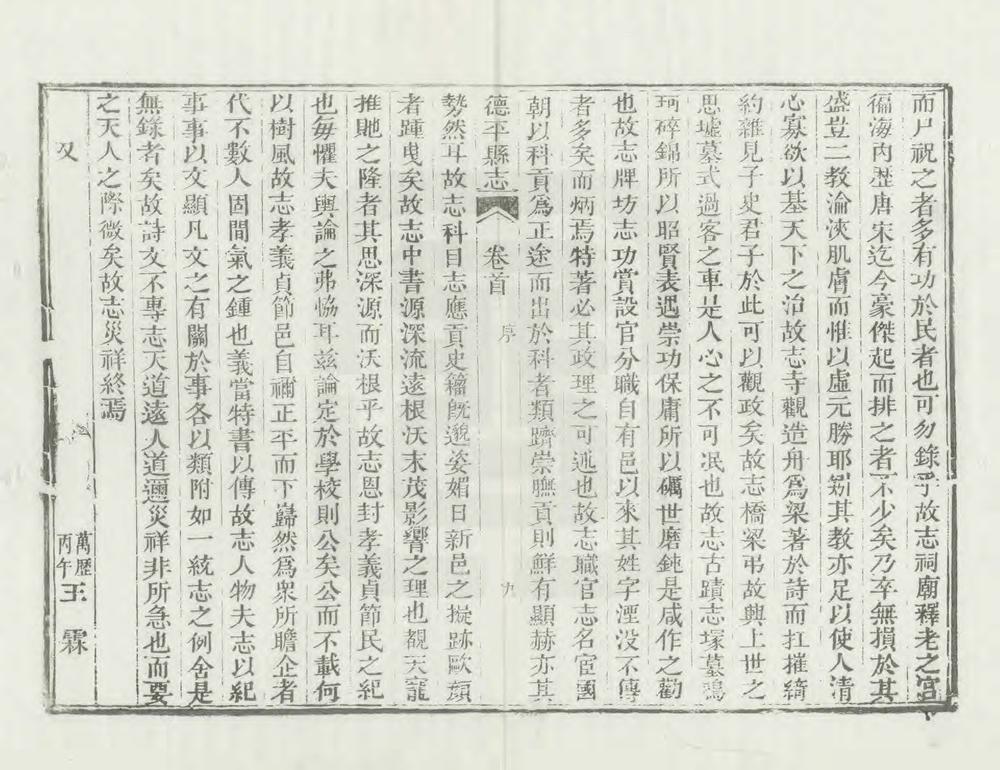 而尸祝之者多有功於民者也可勿錄乎故志祠廟釋老之宮
徧海內歷唐宋迄今豪傑起而排之者不少矣乃卒無損於其
盛豈二教淪浹肌膚而惟以虛元勝耶矧其教亦足以使人清
心寡欲以基天下之治故志寺觀造舟為梁著於詩而扛摧綺
約雜見子史君子於此可以觀政矣故志橋梁弔故興上世之
思墟墓式過客之車是人心之不可泯也故志古蹟志塚墓鴻
珂碎錦所以昭賢表遇崇功保庸所以礪世磨鈍是咸作之勸
也故志牌坊志功賞設官分職自有邑以來其姓字湮沒不傳
者多矣而炳焉特著必其政理之可述也故志職官志名宦國
朝以科貢為正途而出於科者類躋崇膴貢則鮮有顯赫亦其
德平縣志 卷首 序 九
勢然耳故志科目志應貢史籀旣邈姿媚日新邑之擬跡歐顏
者踵曳矣故志中書源深流遠根沃末茂影響之理也覩天寵
推貤之隆者其思深源而沃根乎故志恩封孝義貞節民之紀
也每懼夫輿論之弗協耳兹論定於學校則公矣公而不載何
以樹風故志孝義貞節邑自禰正平而下巋然為衆所瞻企者
代不數人固間氣之鍾也義當特書以傳故志人物夫志以紀
事事以文顯凡文之有關於事各以類附如一統志之例舍是
無錄者矣故詩文不專志天道遠人道邇災祥非所急也而要
之天人之際微矣故志災祥終焉
又 萬歷丙午 王霖